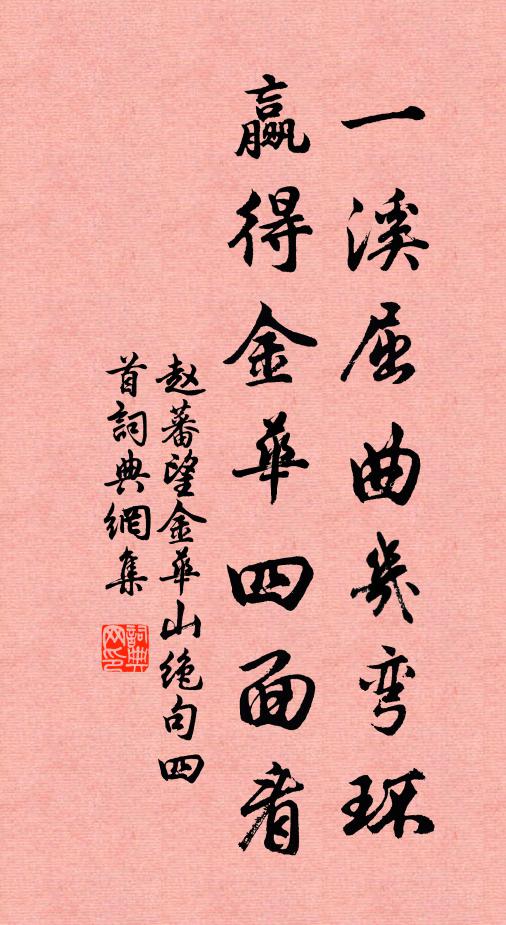 一溪屈曲幾弯环
赢得金華四面看
赵蕃望金華山绝句四
首詞典網集
詞典网印